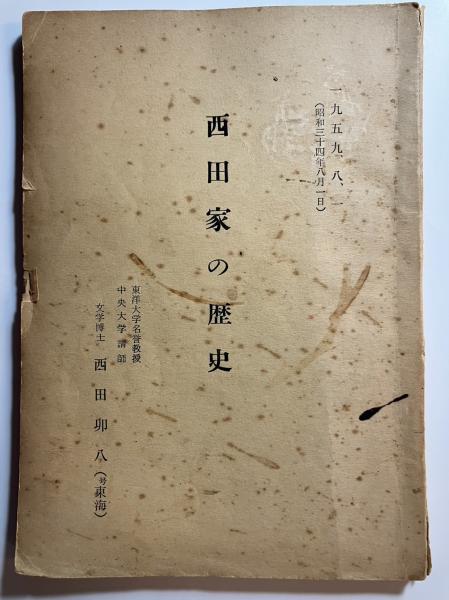 一九五九、八、一
(昭和三十四年八月一日)
西田家の歴史
東洋大学名誉教授
中央大学講師
文学博士 西田卯八(号東海)